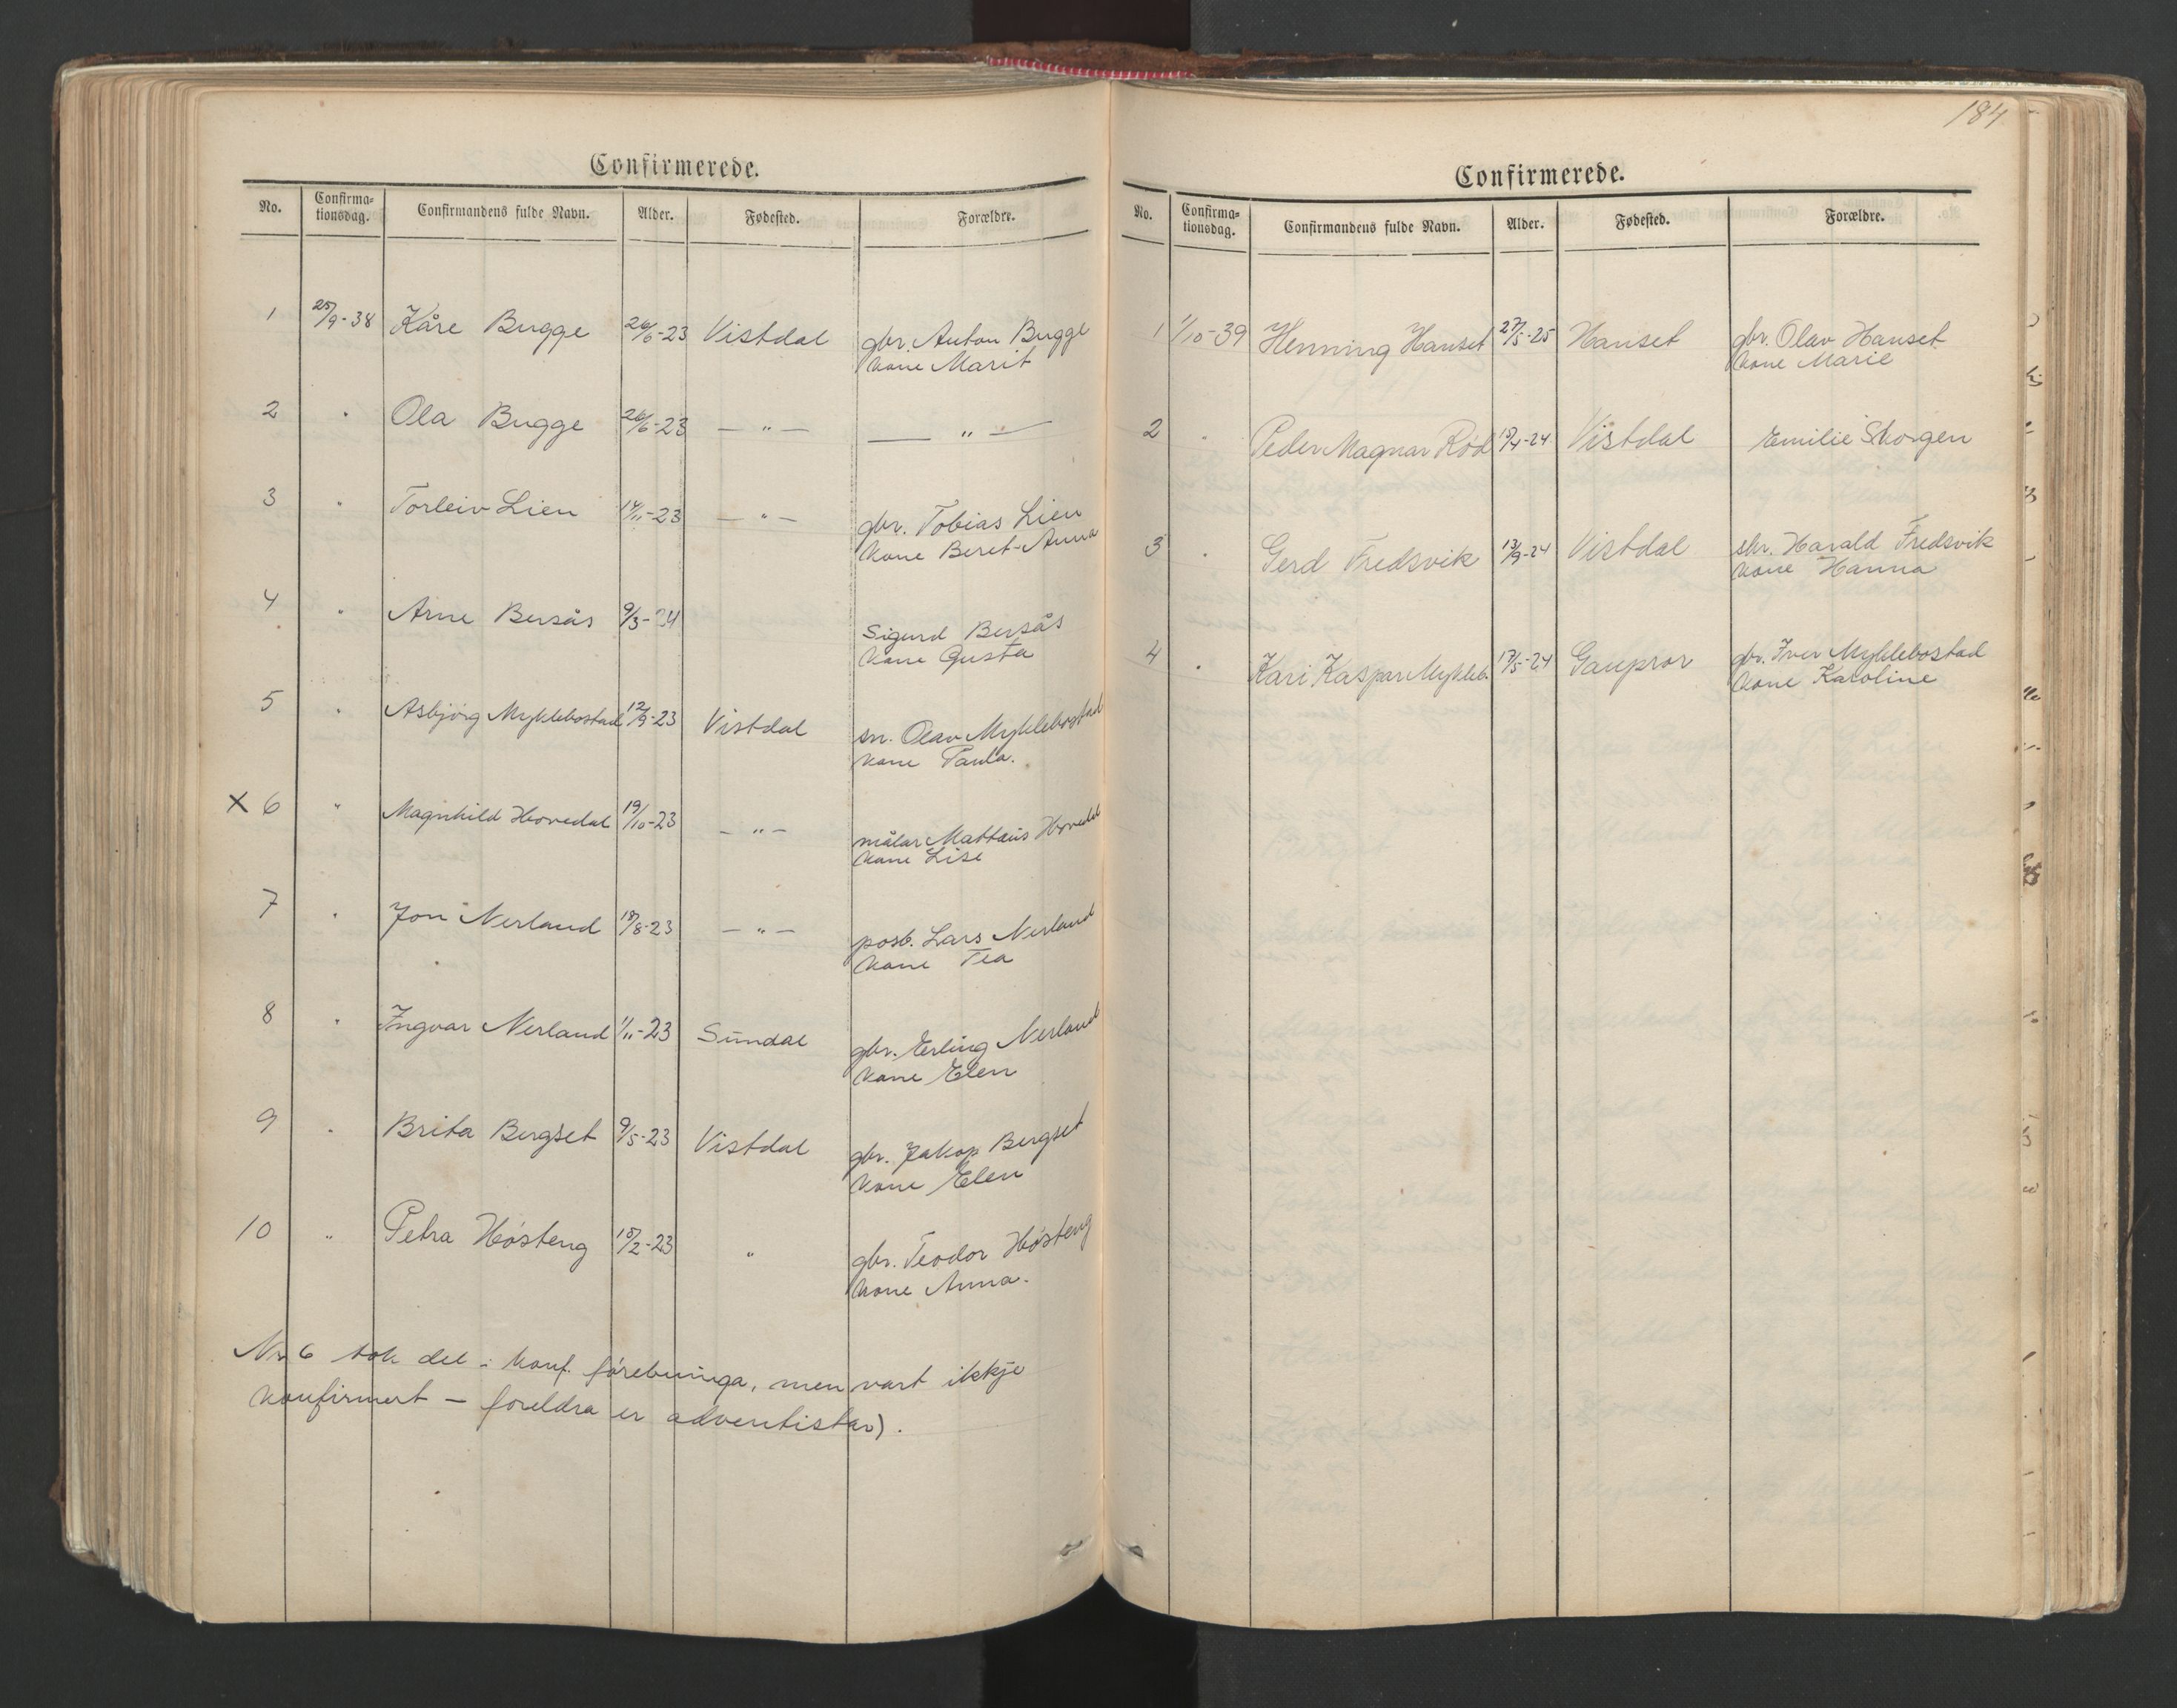 Confirmerede.
No. Confirma-tionsdag. Confirmandens fulde Navn. Alder. Fødested. Forældre.
1 25/9-38 Kåre Bugge 26/6-23 Vistdal gbr. Anton Bugge
kone Marit
2 " Ola Bugge 26/6-23 — " — — " —
3 " Torleiv Lien 14/11-23 — " — gbr. Tobias Lien
kone Beret-Anna
4 " Arne Bersås 9/3-24 Sigurd Bersås
kone Gusta
5 " Asbjörg Myklebostad 12/9-23 Vistdal sn. Olav Myklebostad
kone Paula.
X 6 " Magnhild Hovedal 19/10-23 — " — målar Mattæus Hovedal
kone Lise
7 " Jon Nerland 18/8-23 — " — posb. Lars Nerland
kone Tea
8 " Ingvar Nerland 1/11-23 Sundal gbr. Erling Nerland
kone Elen
9 " Brita Bergset 9/5-23 Vistdal gbr. Jakop Bergset
kone Elen
10 " Petra Hösteng 15/2-23 " gbr. Teodor Hösteng
kone Anna.
Nr 6 tok del i konf. förebuinga, men vart ikkje
konfirmert — foreldra er adventistar).
184.
Confirmerede.
No. Confirma-tionsdag. Confirmandens fulde Navn. Alder. Fødested. Forældre.
1 1/10-39 Henning Hanset 27/5-25 Hanset gbr. Olav Hanset
kone Marie
2 " Peder Magnar Röd 15/4-24 Vistdal Emilie Skorgen
3 " Gerd Fredsvik 13/9-24 Vistdal skr. Harald Fredsvik
kone Hanna
4 " Kari Kaspar Mykleb. 17/5-24 Gauprør gbr. Iver Myklebostad
kone Karoline